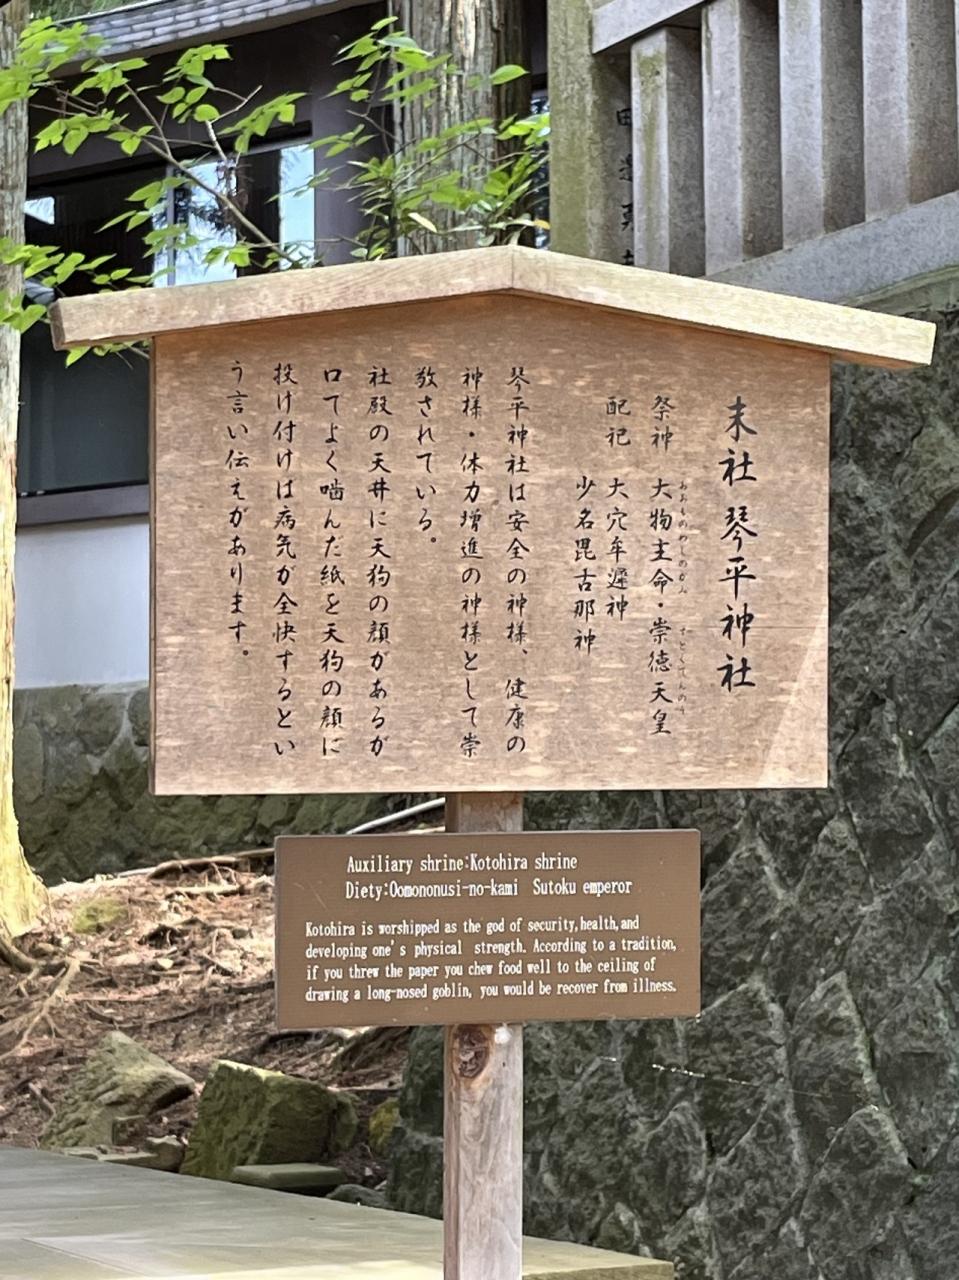 末社 琴平神社
祭神 大物主命・崇徳天皇
おおものぬしのかみ
すとくてんのう
配祀 大穴牟遲神
少名毘古那神
琴平神社は安全の神様、健康の
神様・体力増進の神様として崇
敬されている。
社殿の天井に天狗の顔があるが
口てよく噛んだ紙を天狗の顔に
投け付けは病気が全快するとい
う言い伝えがあります。
Auxiliary shrine:Kotohira shrine
Diety:Oomononusi-no-kami Sutoku emperor
Kotohira is worshipped as the god of security,health,and
developing one's physical strength. According to a tradition,
if you threw the paper you chew food well to the ceiling of
drawing a long-nosed goblin, you would be recover from illness.